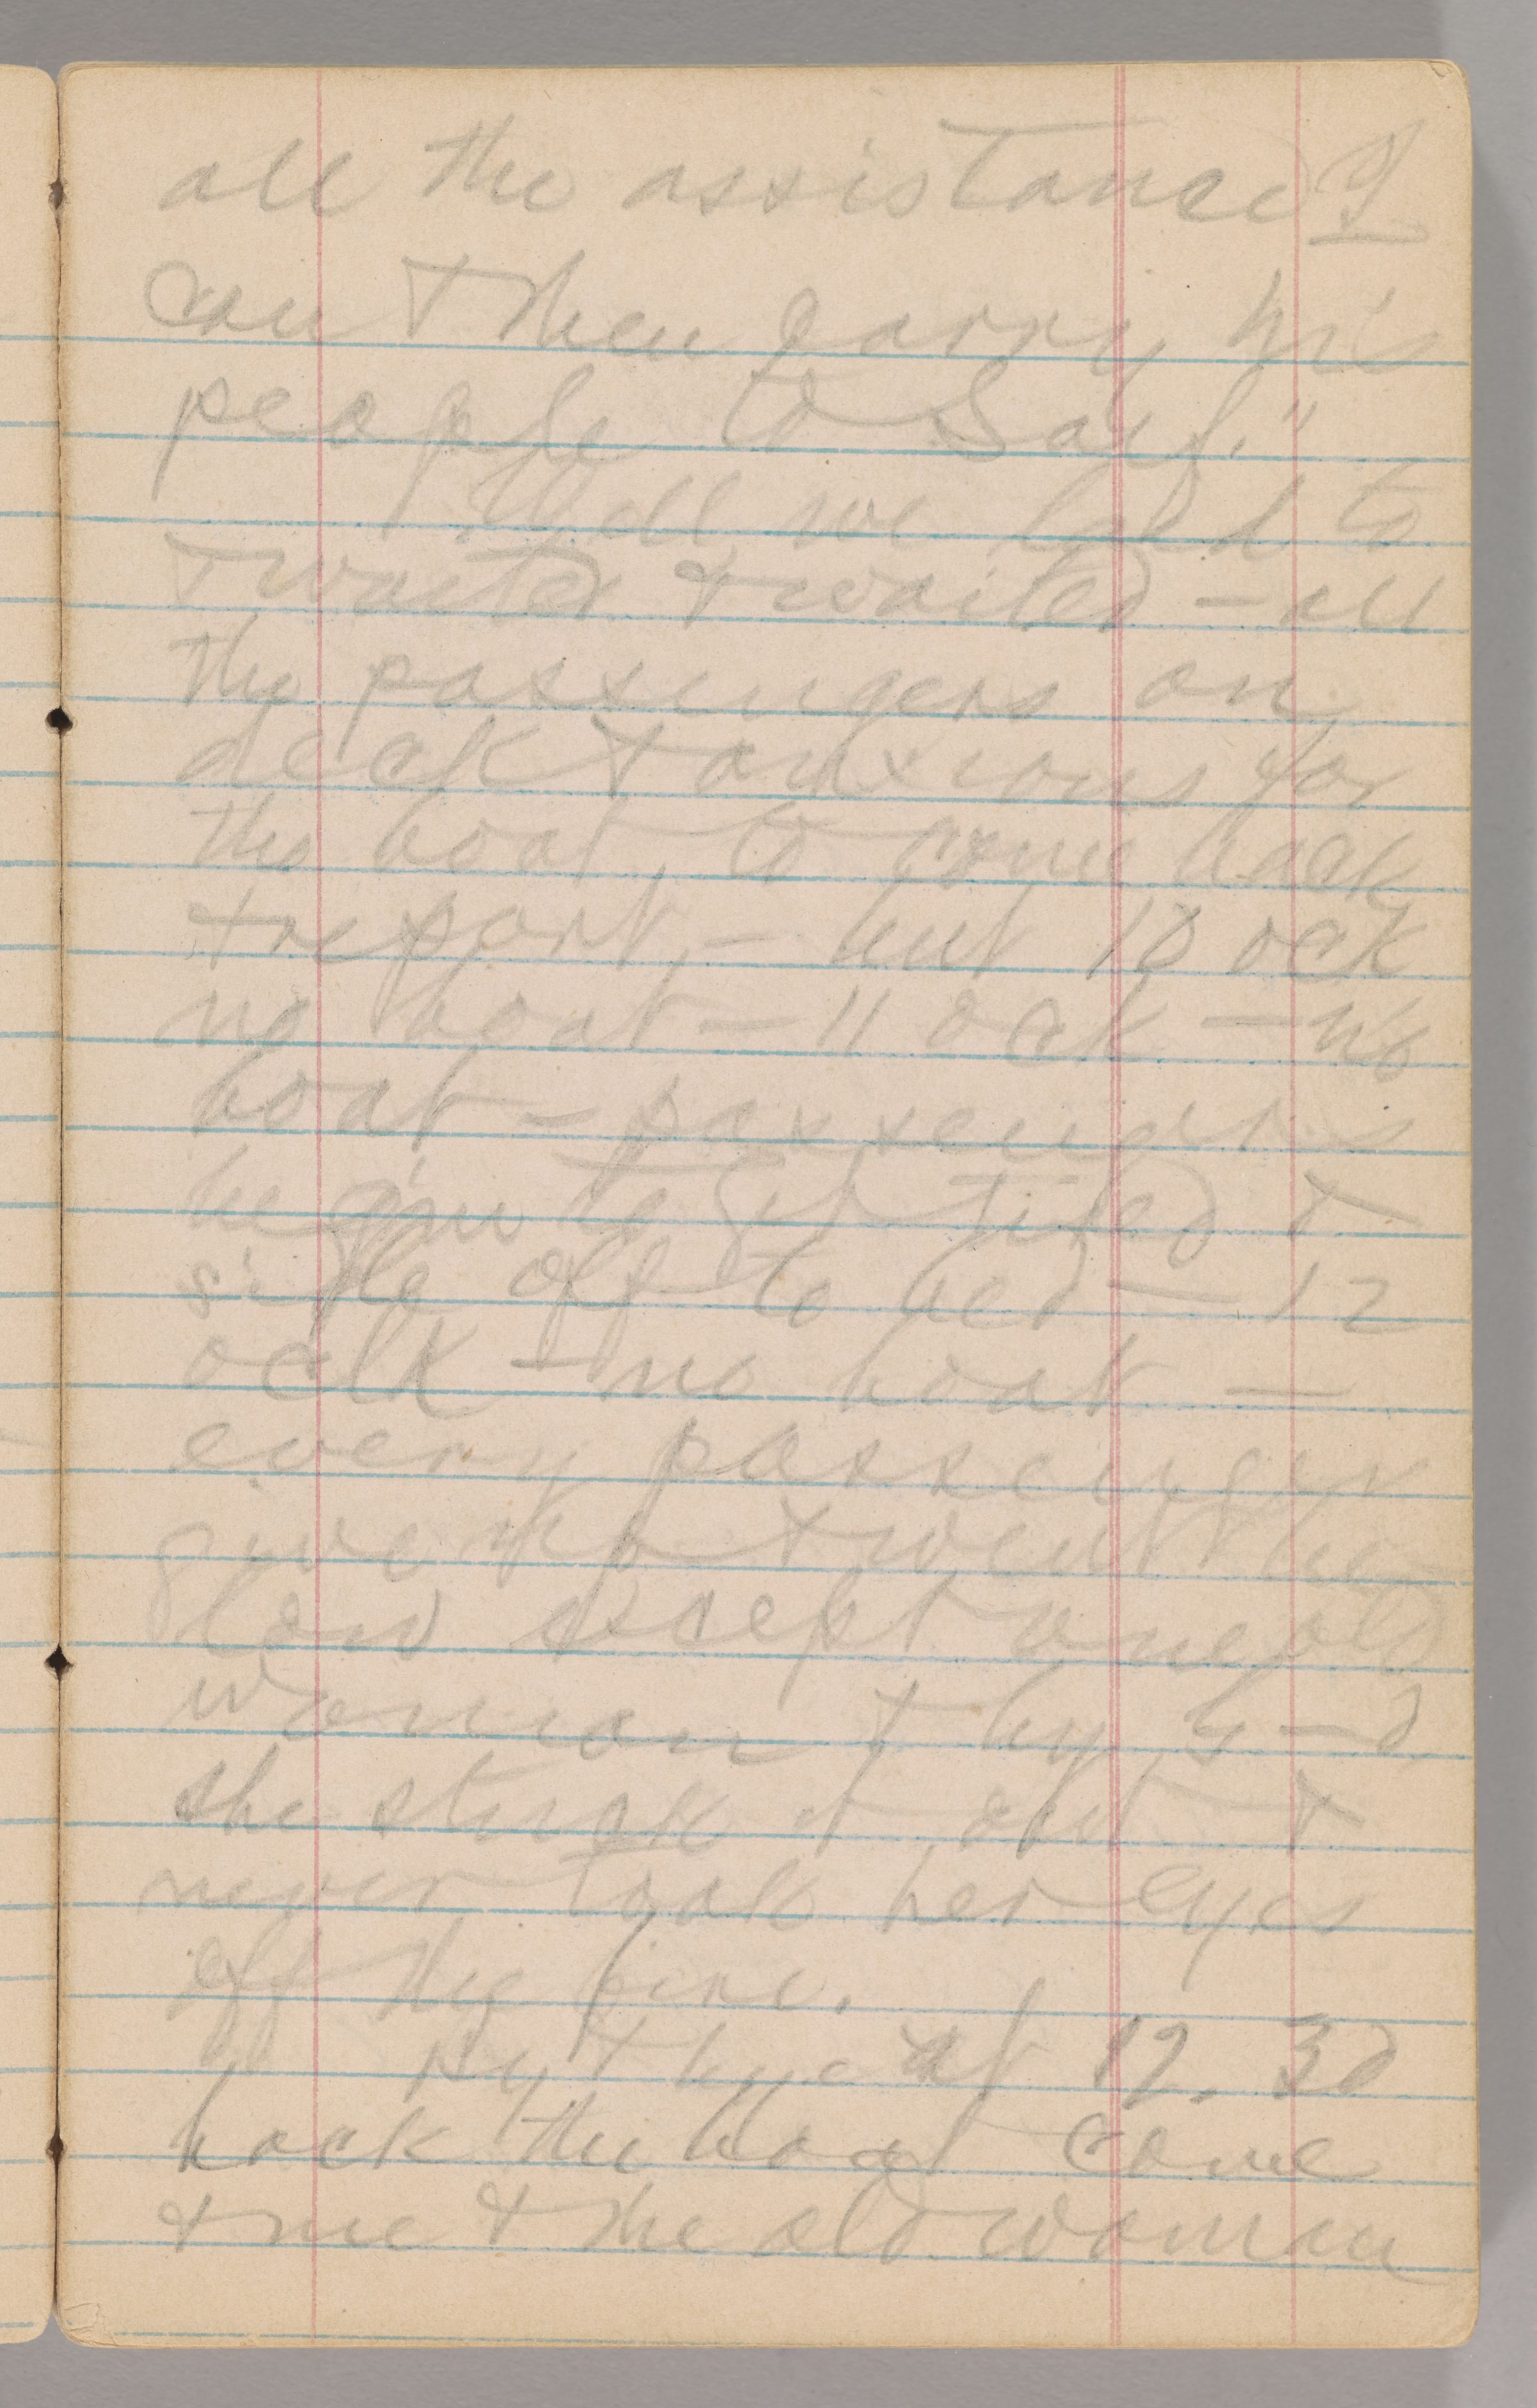 all the assistance I
can & then carry his
people to Sail."
Well, we laid to
& waited & waited – all
the passengers on
deck & anxious for
the boat to come back
& report, – but 10 ock
no boat – 11 ock – no
boat – passengers
begin to get tired &
sidle off to bed – 12
oclk – no boat –
every passenger
give up & went be-
low except one old
woman & by G–d
she stuck it out &
never took her eyes
off the fire.
By & bye at 12.30
back the boat come
& me & the old woman